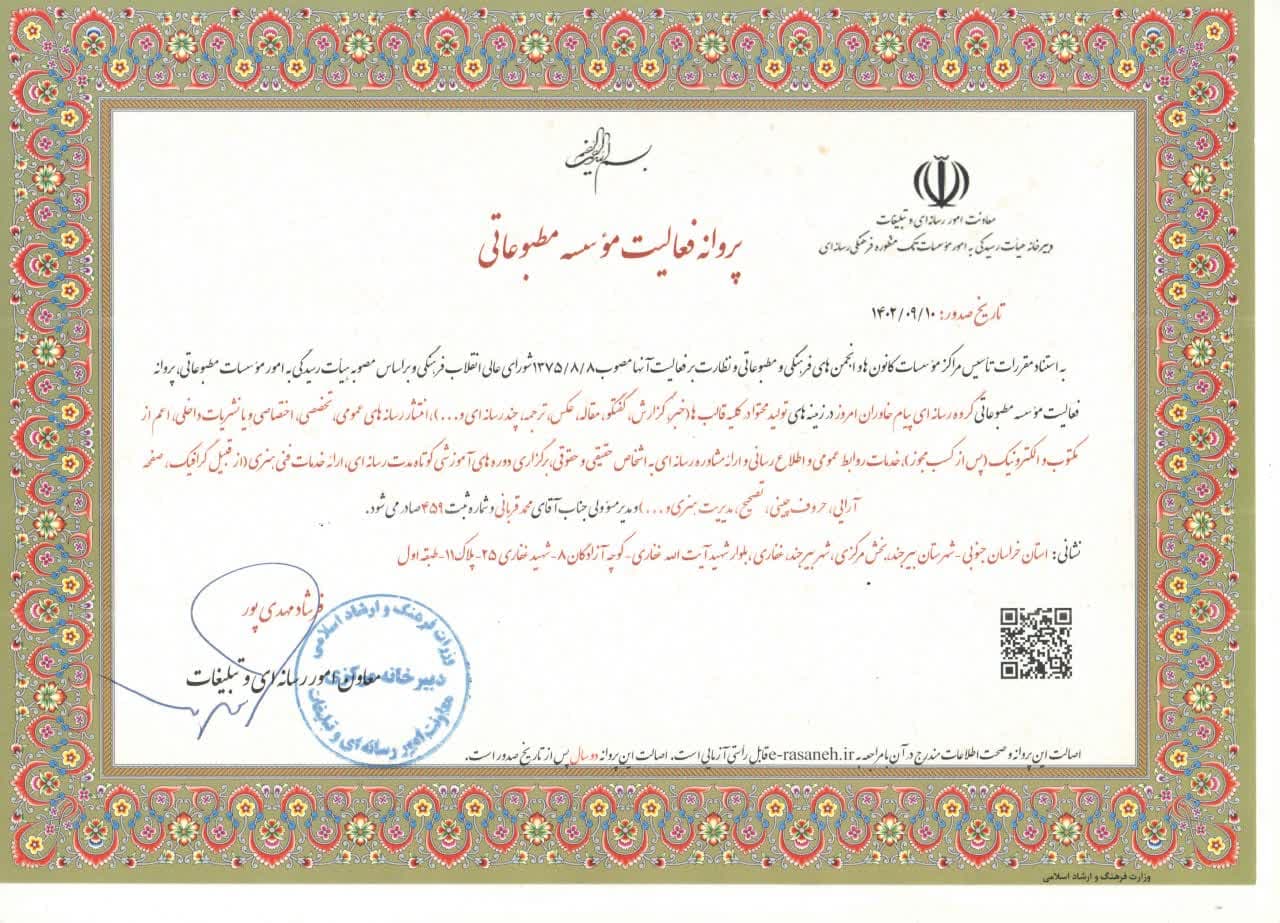 بسم الله الرحمن الرحیم
معاونت امور رسانه ای و تبلیغات
دبیرخانه هیأت رسیدگی به امور مؤسسات تک منظوره فرهنگی رسانه ای
پروانه فعالیت مؤسسه مطبوعاتی
تاریخ صدور: ۱۴۰۲/۰۹/۱۰
به استناد مقررات تأسیس مراکز مؤسسات کانون ها و انجمن های فرهنگی و مطبوعاتی و نظارت بر فعالیت آنها مصوب ۱۳۷۵/۸/۸ شورای عالی انقلاب فرهنگی و براساس مصوبه هیأت رسیدگی به امور مؤسسات مطبوعاتی، پروانه
فعالیت مؤسسه مطبوعاتی گروه رسانه ای پیام خاوران امروز در زمینه های تولید محتوا در کلیه قالب ها (خبر، گزارش، گفتگو، مقاله، عکس، ترجمه، چند رسانه ای و...)، انتشار رسانه های عمومی، تخصصی، اختصاصی و یا نشریات داخلی، اعم از
مکتوب و الکترونیک (پس از کسب مجوز)، خدمات روابط عمومی و اطلاع رسانی و ارائه مشاوره رسانه ای به اشخاص حقیقی و حقوقی، برگزاری دوره های آموزشی کوتاه مدت رسانه ای، ارائه خدمات فنی هنری (از قبیل گرافیک، صفحه
آرایی، حروف چینی، تصحیح، مدیریت هنری و...) و مدیر مسؤولی جناب آقای محمد قربانی و شماره ثبت ۴۵۹ صادر می شود.
نشانی: استان خراسان جنوبی - شهرستان بیرجند، بخش مرکزی، شهر بیرجند، غفاری، بلوار شهید آیت الله غفاری - کوچه آزادگان ۸ - شهید غفاری ۲۵ - پلاک ۱۱ - طبقه اول
فرشاد مهدی پور
معاون امور رسانه ای و تبلیغات
وزارت فرهنگ و ارشاد اسلامی
دبیرخانه مرکزی
معاونت امور رسانه ای و تبلیغات
اصالت این پروانه و صحت اطلاعات مندرج در آن با مراجعه به e-rasaneh.ir قابل راستی آزمایی است. اصالت این پروانه دو سال پس از تاریخ صدور است.
وزارت فرهنگ و ارشاد اسلامی